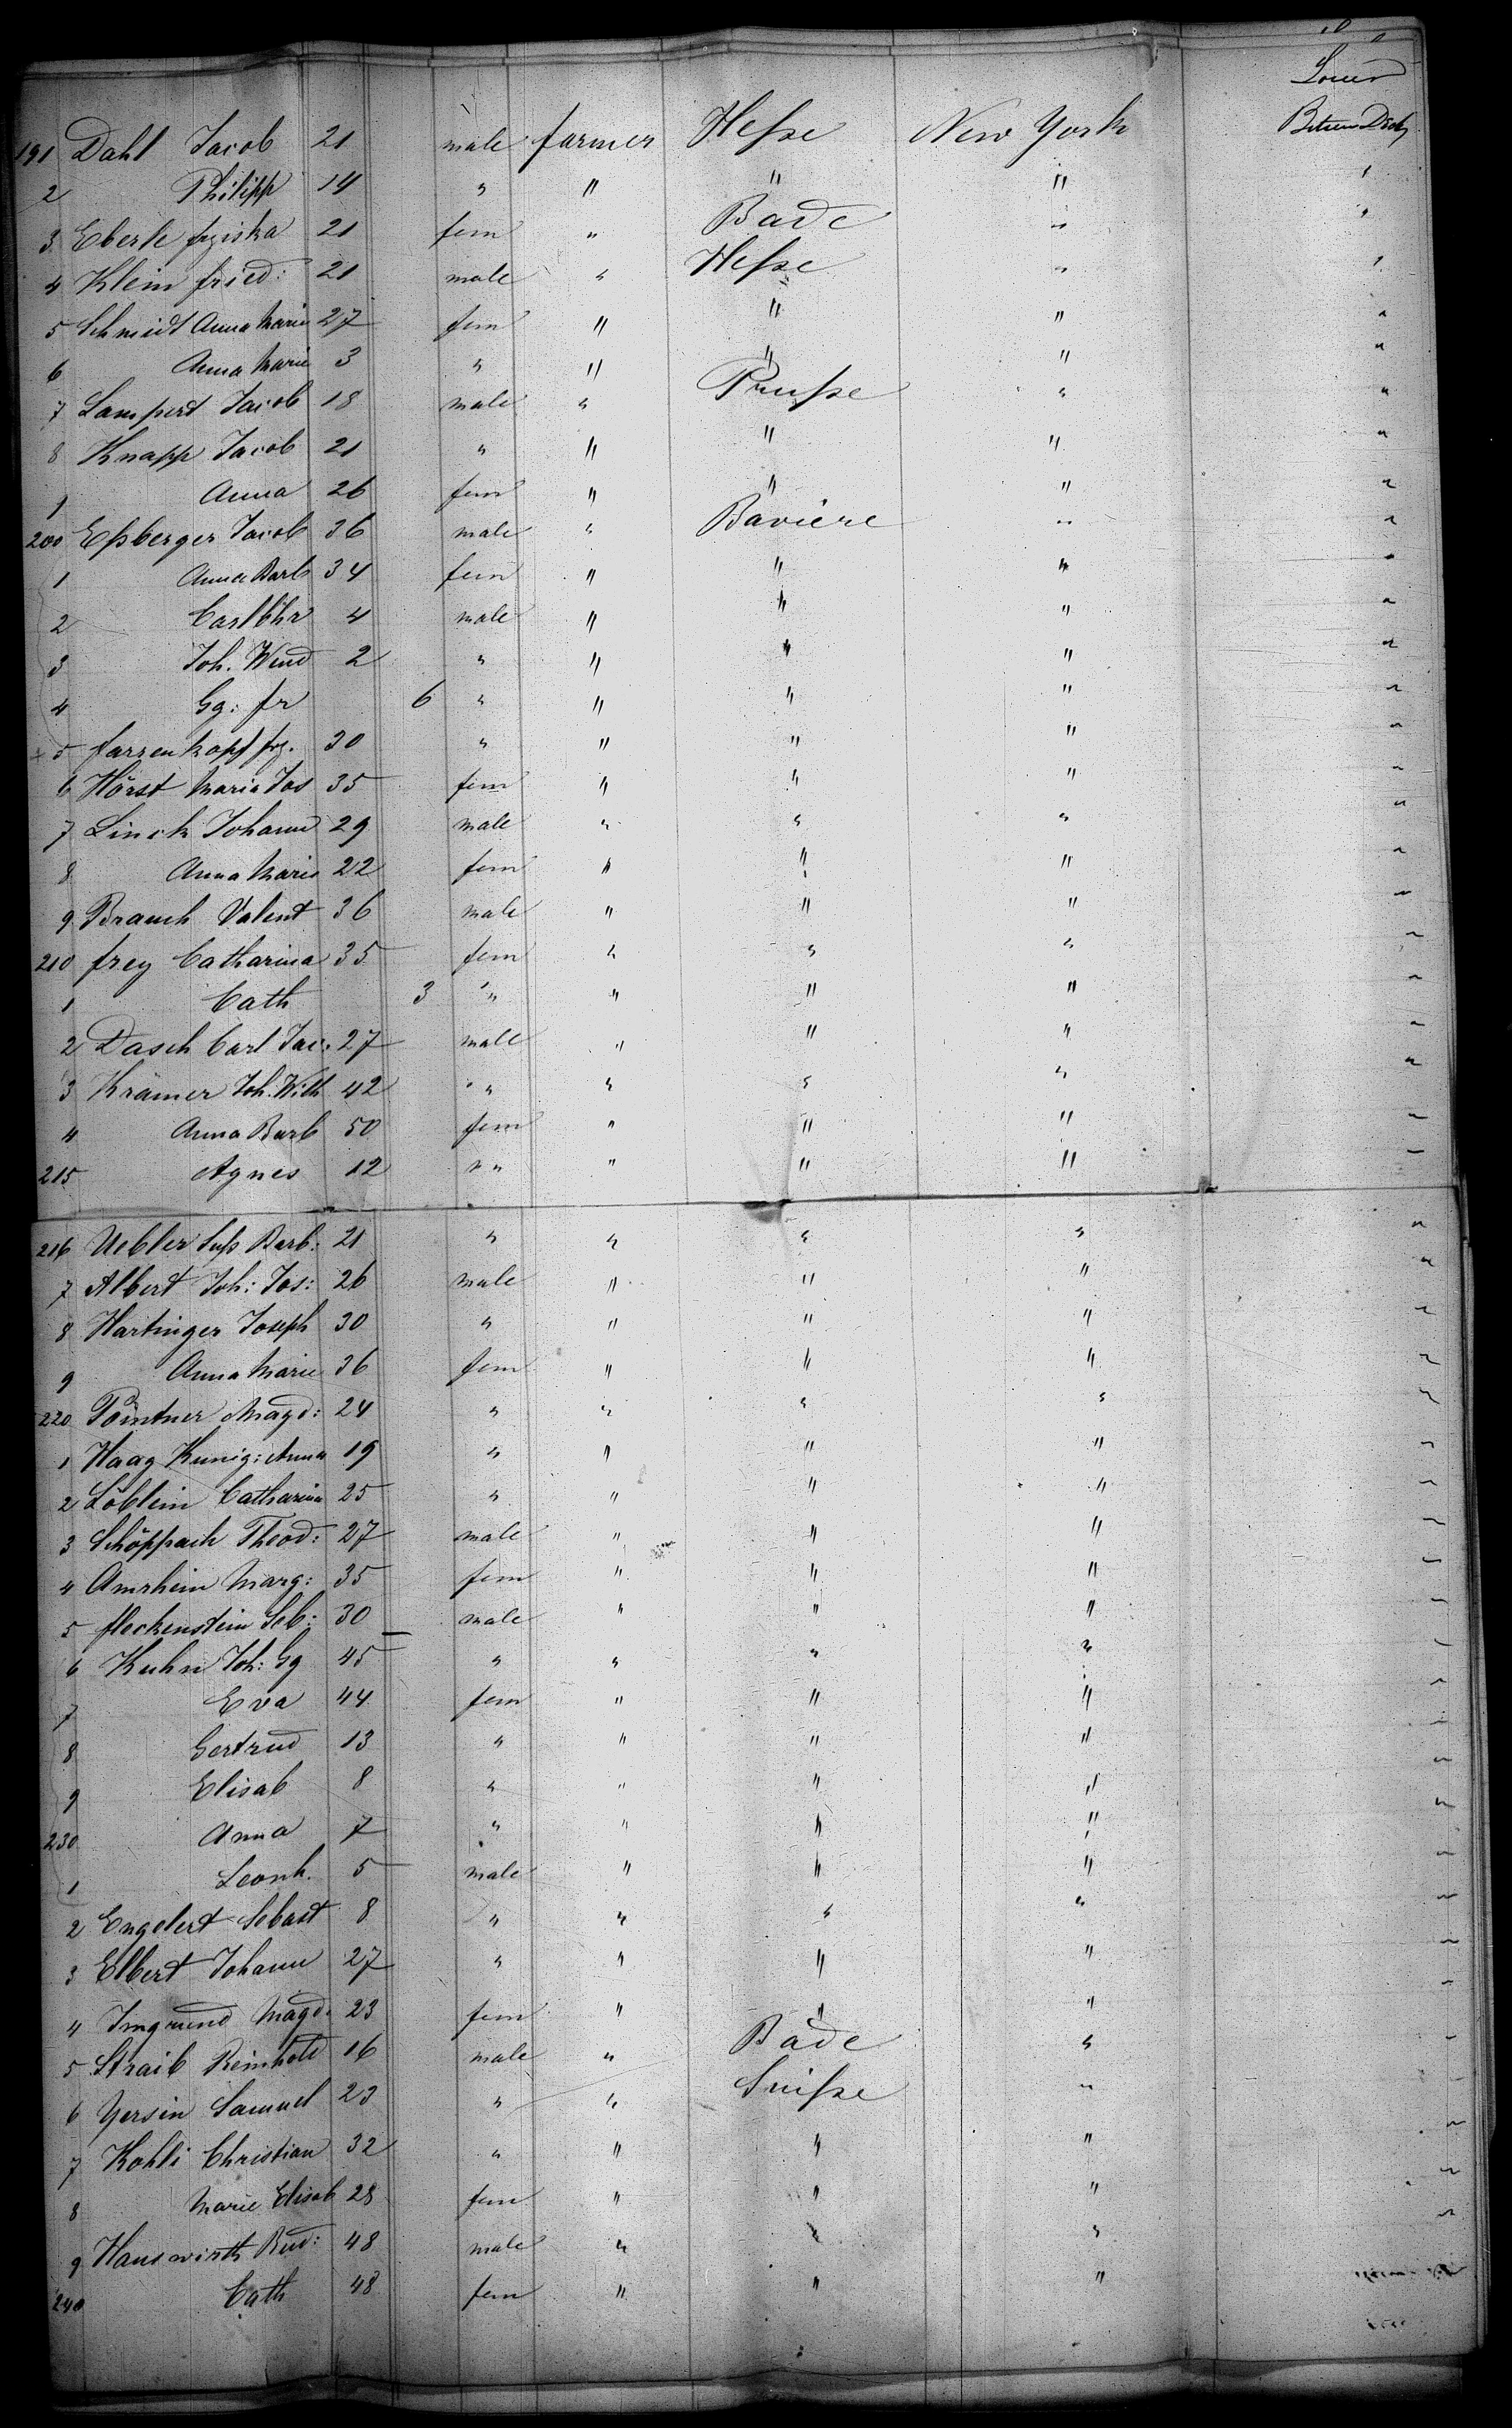 Lower
Between Decks
191 Dahl Jacob 21 male farmer Hesse New York
2 Philipp 14 " " " " "
3 Eberle frziska 21 fem " Bade " "
4 Klein fried: 21 male " Hesse " "
5 Schmidt Anna Marie 27 fem " " " "
6 Anna Marie 3 " " " " "
7 Lampert Jacob 18 male " Prusse " "
8 Knapp Jacob 21 " " " " "
9 Anna 26 fem " " " "
200 Eßberger Jacob 36 male " Baviere " "
1 Anna Barb 34 fem " " " "
2 Carl Chr 4 male " " " "
3 Joh. Wend 2 " " " " "
4 Gg: fr 6 " " " " "
5 farrenkopf frz. 30 " " " " "
6 Hörst Maria Jos 35 fem " " " "
7 Linck Johann 29 male " " " "
8 Anna Marie 22 fem " " " "
9 Brauch Valent 36 male " " " "
210 frey Catharina 35 fem " " " "
1 Cath 3 " " " " "
2 Dasch Carl Jac: 27 male " " " "
3 Krämer Joh. Wilh 42 " " " " "
4 Anna Barb 50 fem " " " "
215 Agnes 12 " " " " "
216 Uebler Barb: 21 " " " " "
7 Albert Joh: Jos: 26 male " " " "
8 Hartinger Joseph 30 " " " " "
9 Anna Marie 36 fem " " " "
220 Pointner Magd: 24 " " " " "
1 Haag Kunig: Anna 19 " " " " "
2 Löblein Catharina 25 " " " " "
3 Schöppach Theod: 27 male " " " "
4 Amrhein Marg: 35 fem " " " "
5 fleckenstein Seb: 30 male " " " "
6 Kuhn Joh: Gg 45 " " " " "
7 Eva 44 fem " " " "
8 Gertrud 13 " " " " "
9 Elisab 8 " " " " "
230 Anna 7 " " " " "
1 Leonh. 5 male " " " "
2 Engelert Sebast 8 " " " " "
3 Elbert Johann 27 " " " " "
4 Imgrund Magd. 23 fem " " " "
5 Straib Reinhold 16 male " Bade " "
6 Yersin Samuel 23 " " Suisse " "
7 Kohli Christian 32 " " " " "
8 Marie Elisab 28 fem " " " "
9 Hauswirth Rud: 48 male " " " "
240 Cath 48 fem " " "